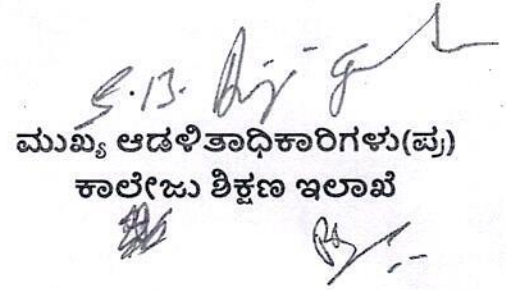 S.B.
ಮುಖ್ಯ ಆಡಳಿತಾಧಿಕಾರಿಗಳು(ಪ್ರ)
ಕಾಲೇಜು ಶಿಕ್ಷಣ ಇಲಾಖೆ